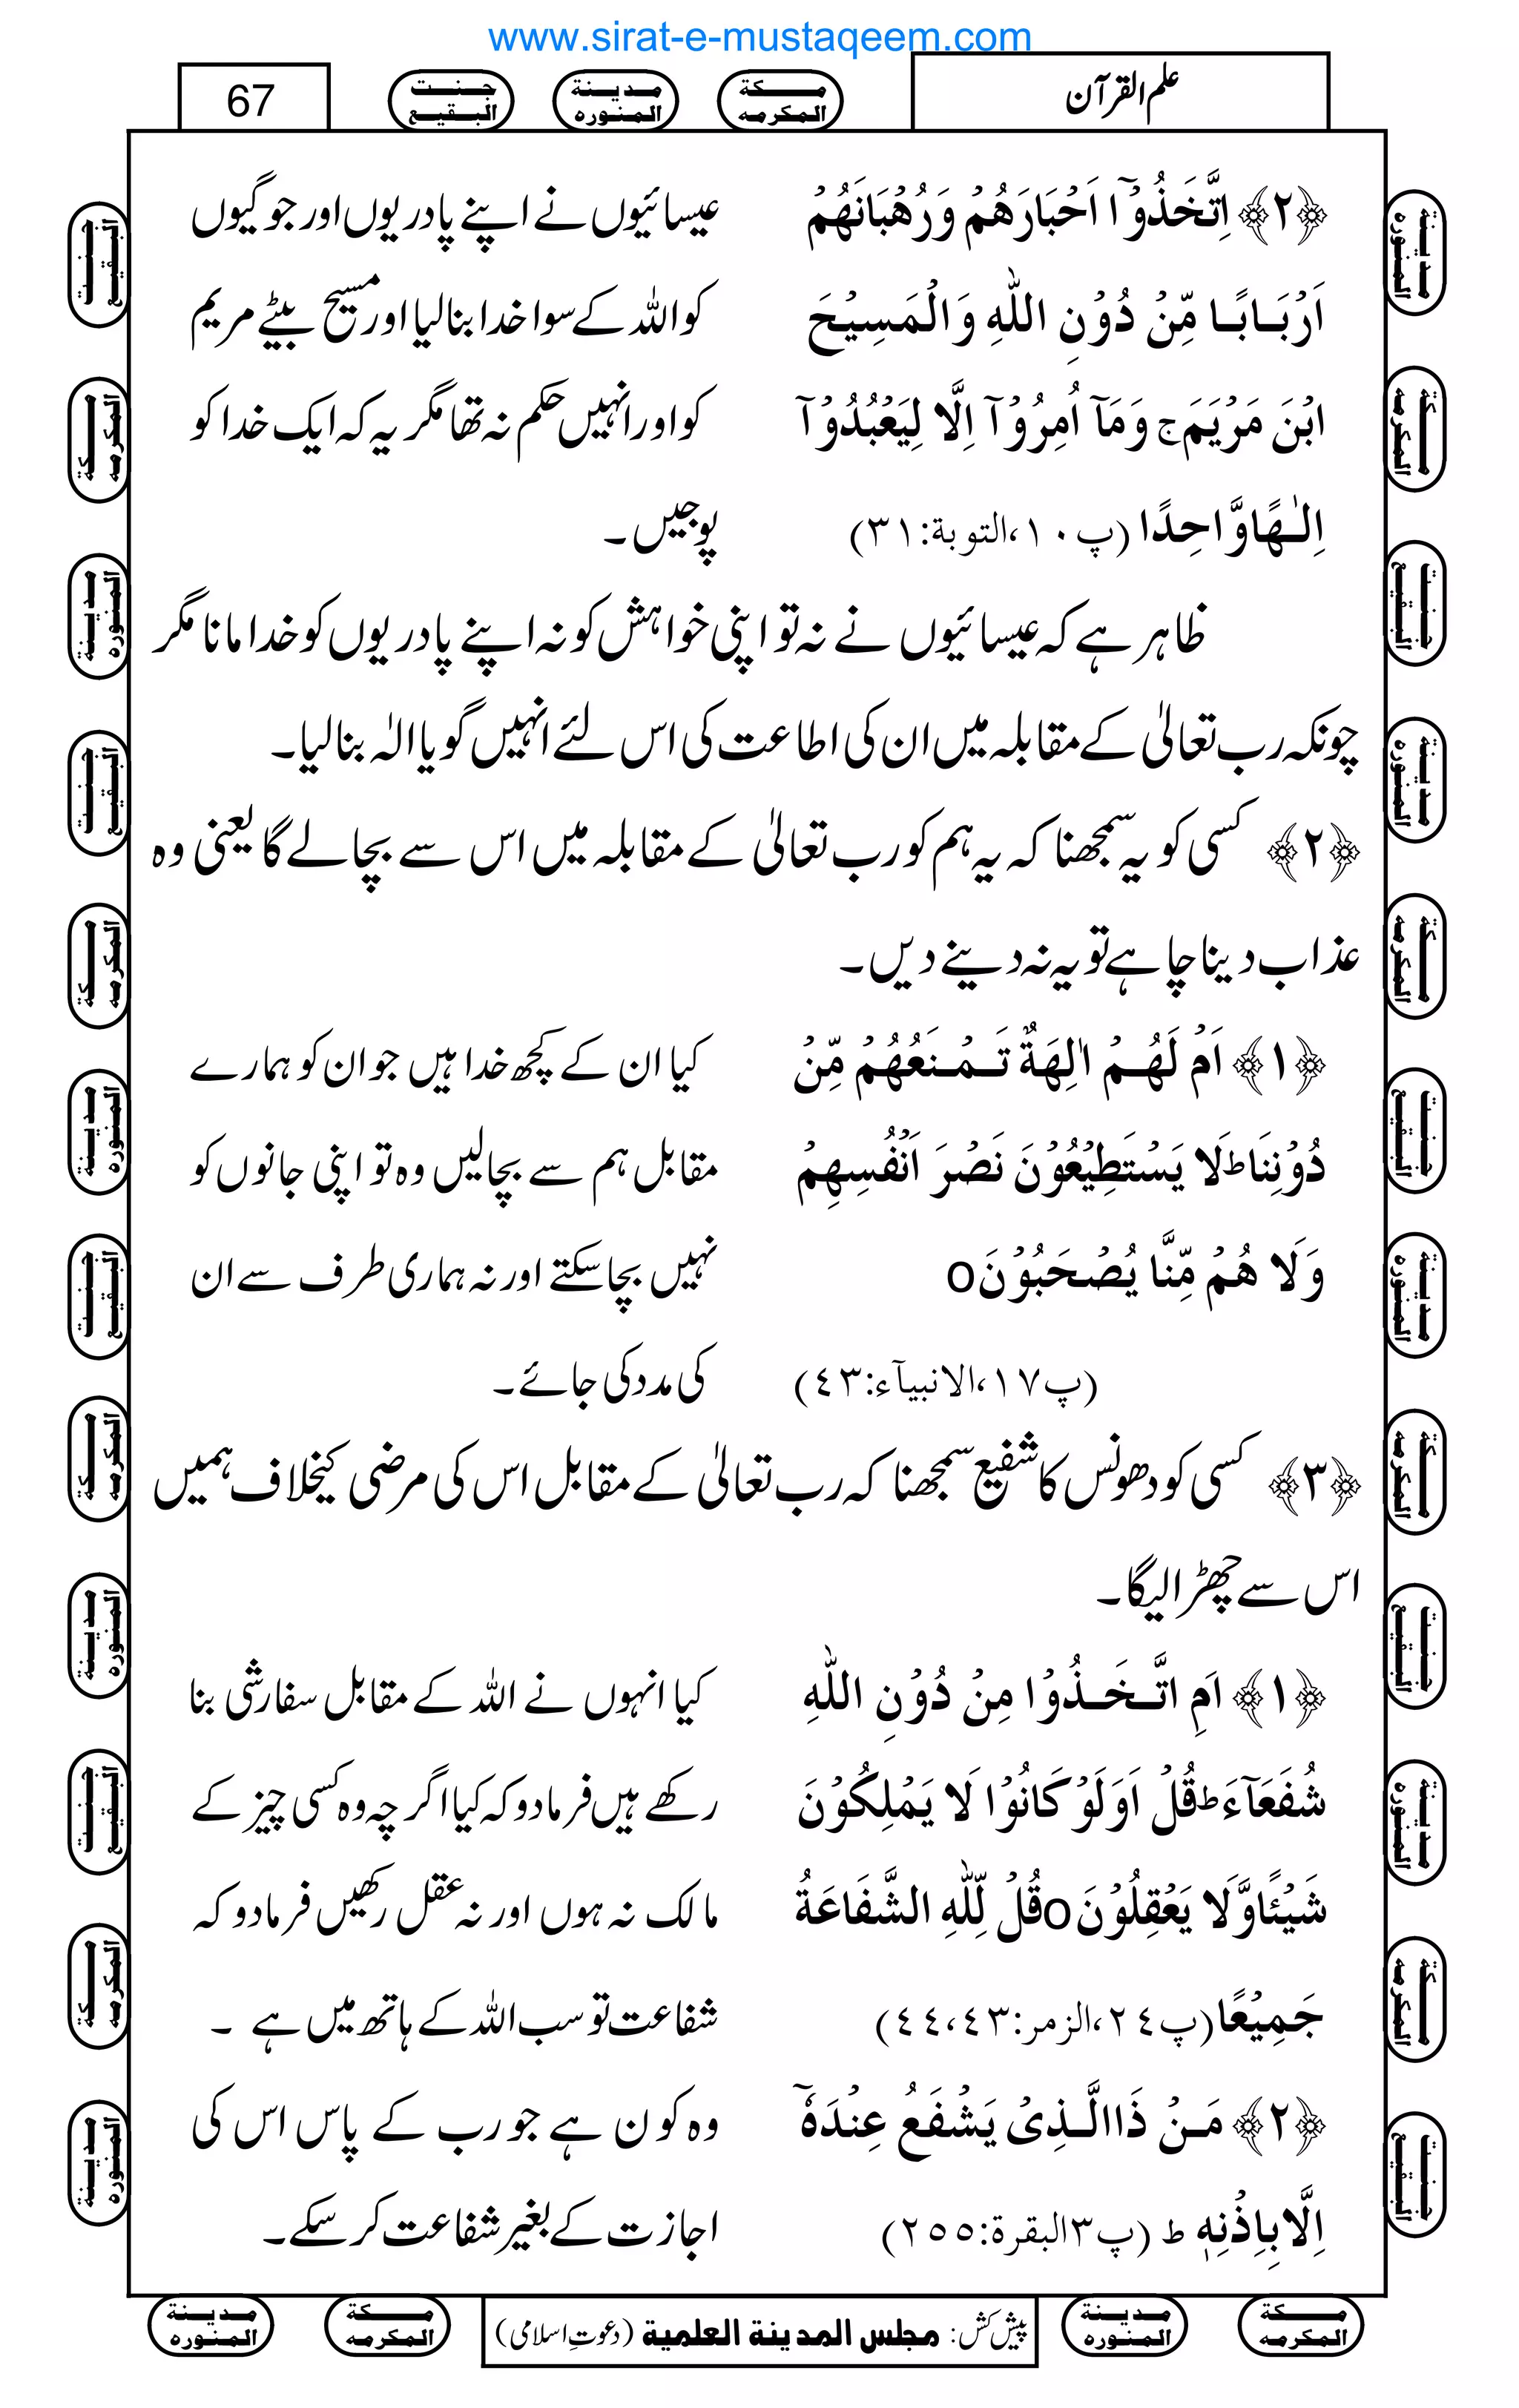 www.sirat-e-mustaqeem.com
علم القرآن
مکة المکرمه
مدينة المنوره
جنت البقيع
67
﴿۲﴾ اِتَّخَذُوْۤا اَحْبَارَهُمْ وَرُهْبَانَهُمْ
عیسائیوں نے اپنے پادریوں اور جوگیوں
اَرْبَابًا مِّنْ دُوْنِ اللّٰهِ وَالْمَسِيْحَ
کو اللہ کے سوا خدا بنالیا اور مسیح بیٹے مریم
ابْنَ مَرْيَمَ ج وَمَآ اُمِرُوْآ اِلَّا لِيَعْبُدُوْآ
کو اور انہیں حکم نہ تھا مگر یہ کہ ایک خدا کو
اِلٰـهًا وَّاحِدًا (پ۱۰،التوبة:۳۱)
پوجیں۔
ظاہر ہے کہ عیسائیوں نے نہ تو اپنی خواہش کو نہ اپنے پادریوں کو خدا مانا مگر
چونکہ رب تعالٰی کے مقابلہ میں ان کی اطاعت کی اس لئے انہیں گویا الٰہ بنالیا۔
﴿۲﴾ کسی کو یہ سمجھنا کہ یہ ہم کو رب تعالٰی کے مقابلہ میں اس سے بچالے گا یعنی وہ
عذاب دینا چاہے تو یہ نہ دینے دیں۔
﴿۱﴾ اَمْ لَهُمْ اٰلِهَةٌ تَمْنَعُهُمْ مِّنْ
کیا ان کے کچھ خدا ہیں جو ان کو ہمارے
دُوْنِنَا ط لَا يَسْتَطِيْعُوْنَ نَصْرَ اَنْفُسِهِمْ
مقابل ہم سے بچالیں وہ تو اپنی جانوں کو
وَلَا هُمْ مِّنَّا يُصْحَبُوْنَ o
نہیں بچاسکتے اور نہ ہماری طرف سے ان
(پ۱۷،الانبیآء:٤۳)
کی مدد کی جائے۔
﴿۳﴾ کسی کو دھونس کا شفیع سمجھنا کہ رب تعالٰی کے مقابل اس کی مرضی کیخلاف ہمیں
اس سے چھڑا لیگا۔
﴿۱﴾ اَمِ اتَّخَذُوْا مِنْ دُوْنِ اللّٰهِ
کیا انہوں نے اللہ کے مقابل سفارشی بنا
شُفَعَآءَ ط قُلْ اَوَلَوْ كَانُوْا لَا يَمْلِكُوْنَ
رکھے ہیں فرمادو کہ کیا اگر چہ وہ کسی چیز کے
شَيْئًا وَّلَا يَعْقِلُوْنَ o قُلْ لِّلّٰهِ الشَّفَاعَةُ
مالک نہ ہوں اور نہ عقل رکھیں فرمادو کہ
جَمِيْعًا (پ۲٤،الزمر:٤۳،٤٤)
شفاعت تو سب اللہ کے ہاتھ میں ہے ۔
﴿۲﴾ مَنْ ذَا الَّذِىْ يَشْفَعُ عِنْدَهٗۤ
وہ کون ہے جو رب کے پاس اس کی
اِلَّا بِاِذْنِهٖ ط (پ۳البقرة:۲۵۵)
اجازت کے بغیر شفاعت کر سکے۔
پیش کش: مجلس المدينة العلمية (دعوتِ اسلامی)